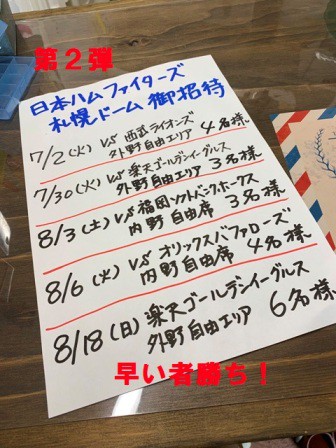 第２弾
日本ハムファイターズ
札幌ドーム御招待
7/2(火) VS 西武ライオンズ
外野自由エリア 4名様
7/30(火) VS 楽天ゴールデンイーグルス
外野自由エリア 3名様
8/3(土) VS 福岡ソフトバンクホークス
内野自由席 3名様
8/6(火) VS オリックスバファローズ
内野自由席 4名様
8/18(日) 楽天ゴールデンイーグルス
外野自由エリア 6名様
早い者勝ち！